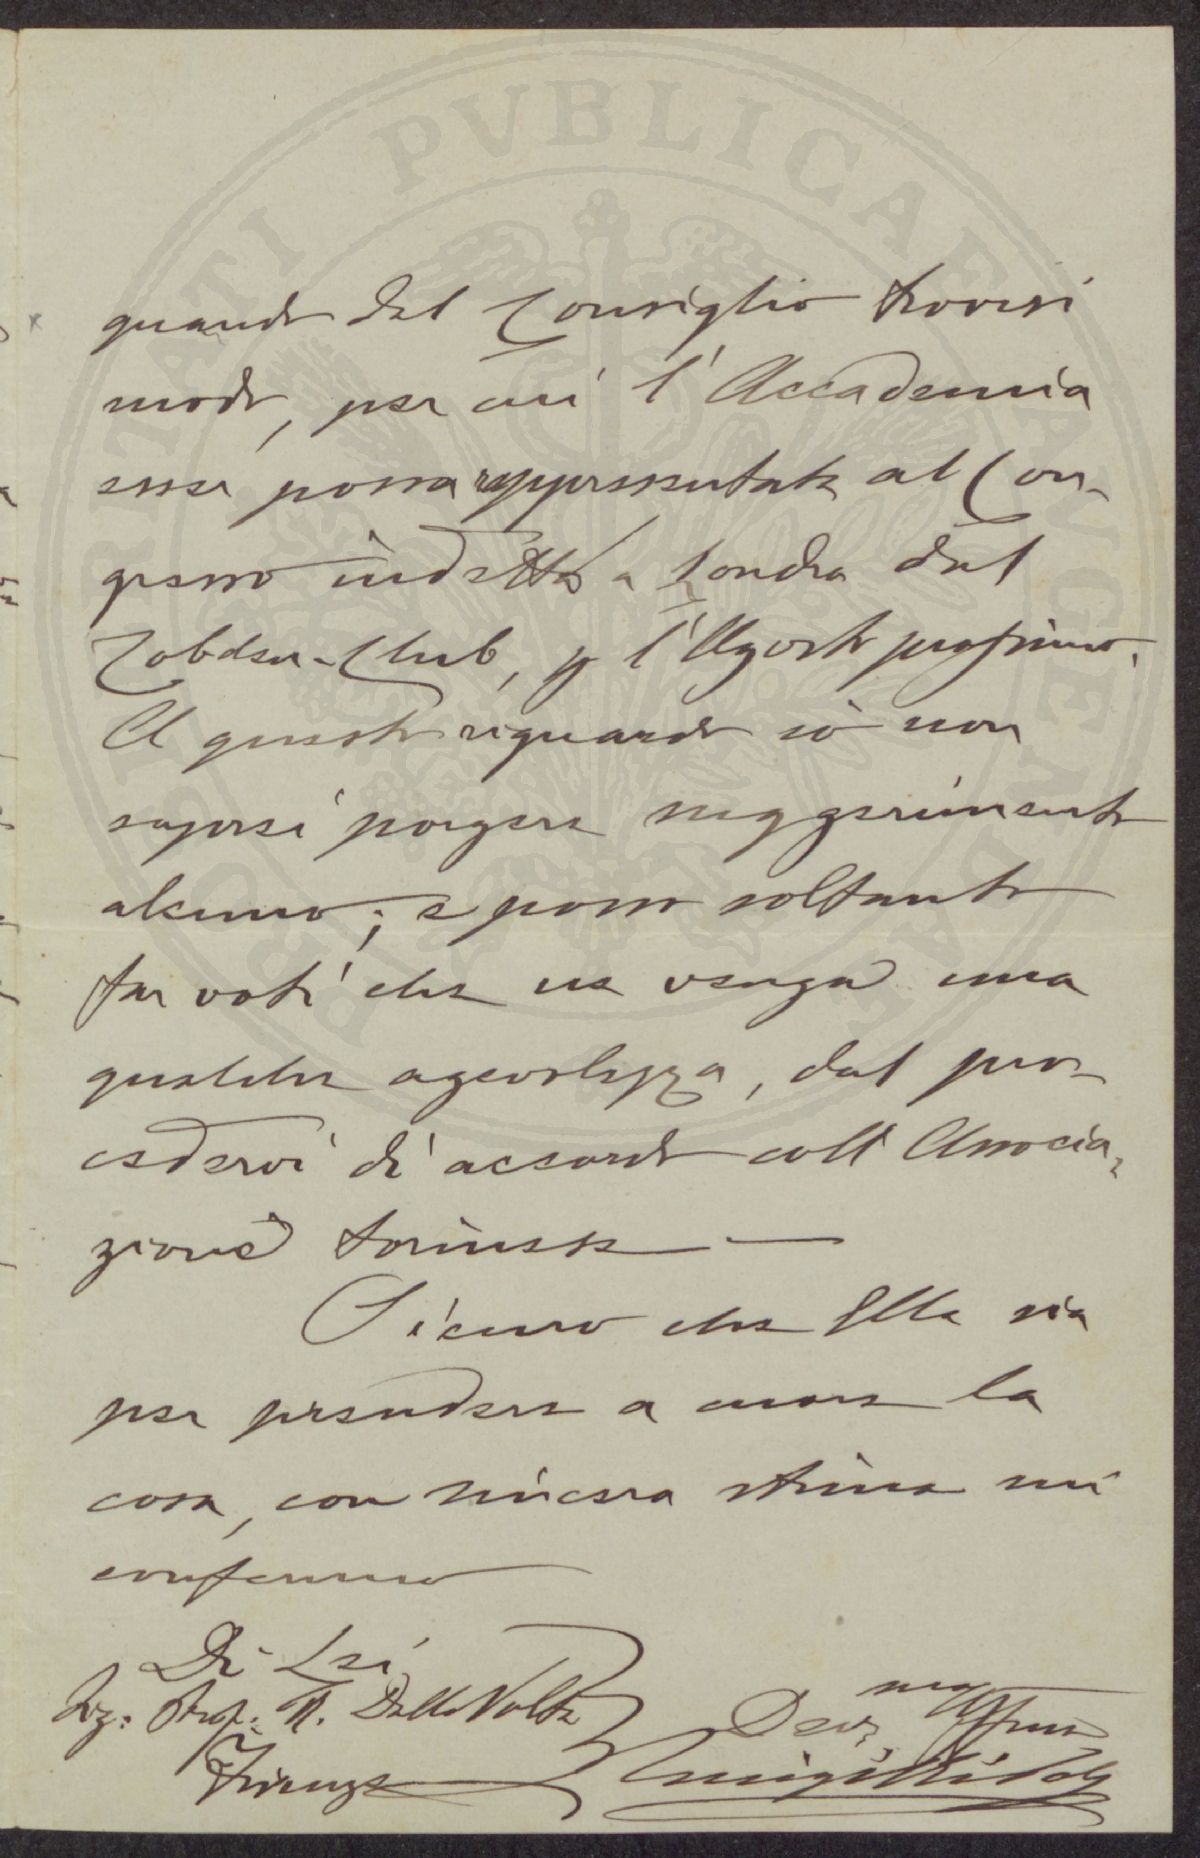 quando dal Consiglio trovisi
modo, per cui l'Accademia
essa possa rappresentata al Con-
gresso indetto a Londra dal
Cobden-Club, p l'Agosto prossimo.
A questo riguardo io non
saprei porgere suggerimento
alcuno; e posso soltanto
far voti che ne venga una
qualche agevolezza, dal pro-
cedervi di accordo coll'Associa-
zione torinese —
Sicuro che Ella sia
per prendere a cuore la
cosa, con sincera stima mi
confermo
Di Lei
Sig: Prof: R. Dalla Volta
Firenze
Dev
Luigi
PVBLICAE